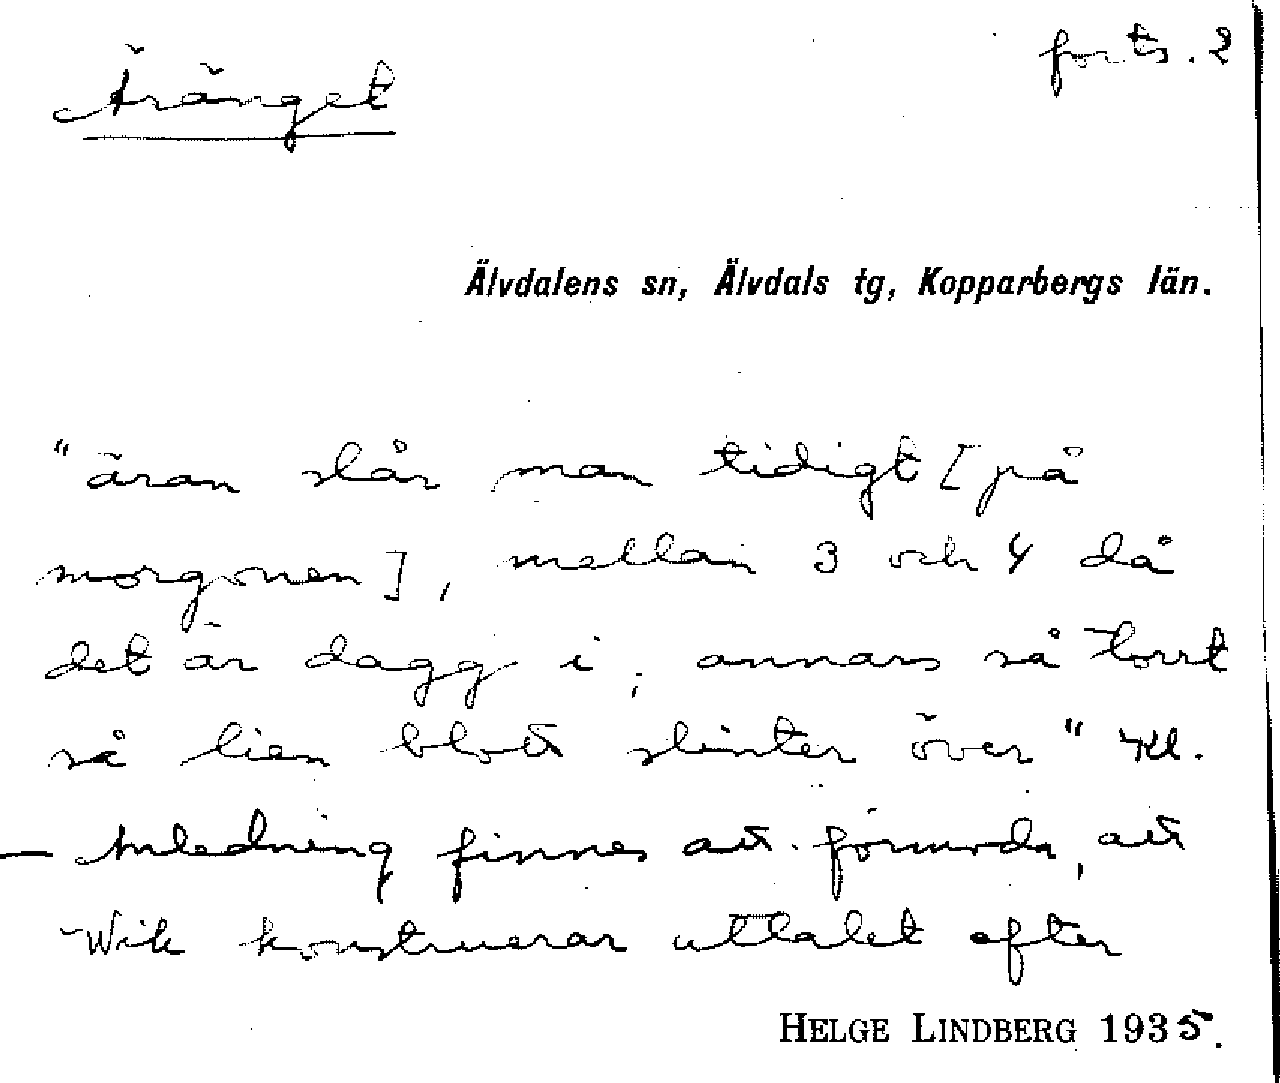 Äränget
forts. 2
Älvdalens sn, Älvdals tg, Kopparbergs län.
"äran slår man tidigt [på
morgonen], mellan 3 och 4 då
det är dagg i, annars så torrt
så lien blott slinter över" Kl.
— Anledning finnes att förmoda, att
Wik konstruerar uttalet efter
HELGE LINDBERG 1935.